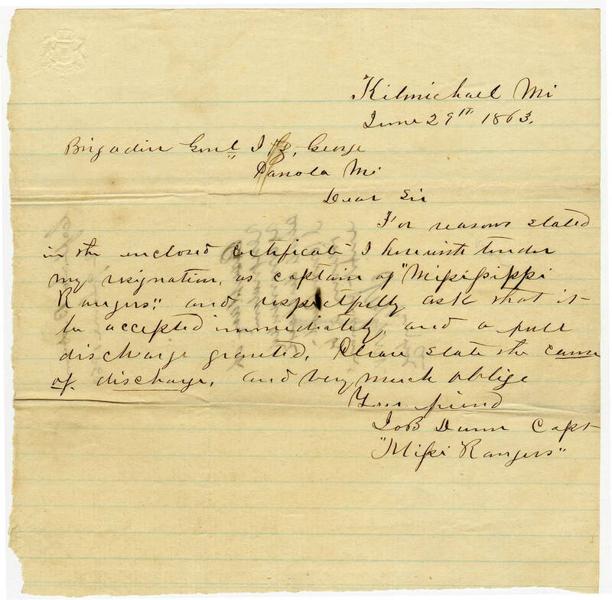 Kilmichael Mi
June 29th 1863.
Brigadier Genl J. Z. George
Panola Mi
Dear Sir
For reasons stated
in the enclosed certificate I herewith tender
my resignation, as captain of "Missippi
Rangers" and respectfully ask that it
be accepted immediately, and a full
discharge granted. Please state the cause
of discharge, and very much oblige
Your friend
Dunn Capt
"Missi Rangers"